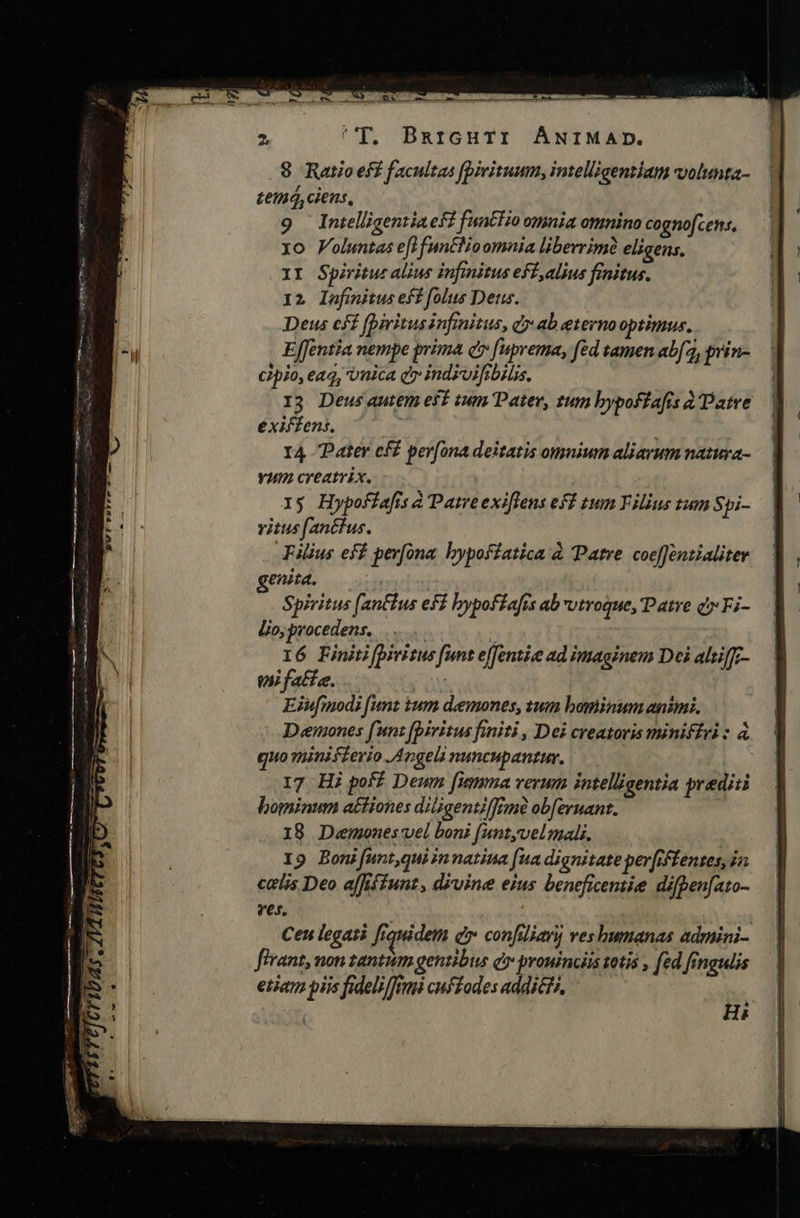 2 T. BRIGHTI ANIMAD.
8 Ratio est facultas spirituum, intelligentiam volunta-
temq́, ciens.
9 Intelligentia est functio omnia omnino cognoscens.
10 Voluntas est functio omnia liberrimè eligens.
11 Spiritus alius infinitus est, alius finitus.
12 Infinitus est solus Deus.
Deus est spiritus infinitus, & ab æterno optimus.
Essentia nempe prima & suprema, sed tamen absq́, prin-
cipio, eaq́, vnica & indiuisibilis.
13 Deus autem est tum Pater, tum hypostasis à Patre
existens.
14 Pater est persona deitatis omnium aliarum natura-
rum creatrix.
15 Hypostasis à Patre existens est tum Filius tum Spi-
ritus sanctus.
Filius est persona hypostatica à Patre coessentialiter
genita.
Spiritus sanctus est hypostasis ab vtroque, Patre & Fi-
lio, procedens.
16 Finiti spiritus sunt essentiæ ad imaginem Dei altissi-
mi factæ.
Eiusmodi sunt tum dæmones, tum hominum animi.
Dæmones sunt spiritus finiti, Dei creatoris ministri: à
quo ministerio Angeli nuncupantur.
17 Hi post Deum summa rerum intelligentia præditi
hominum actiones diligentissimè obseruant.
18 Dæmones vel boni sunt, vel mali.
19 Boni sunt, qui in natiua sua dignitate persistentes, in
cælis Deo assistunt, diuinæ eius beneficentiæ dispensato-
res.
Ceu legati siquidem & consiliarij res humanas admini-
strant, non tantùm gentibus & prouinciis totis, sed singulis
etiam piis fidelissimi custodes addicti.
Hi